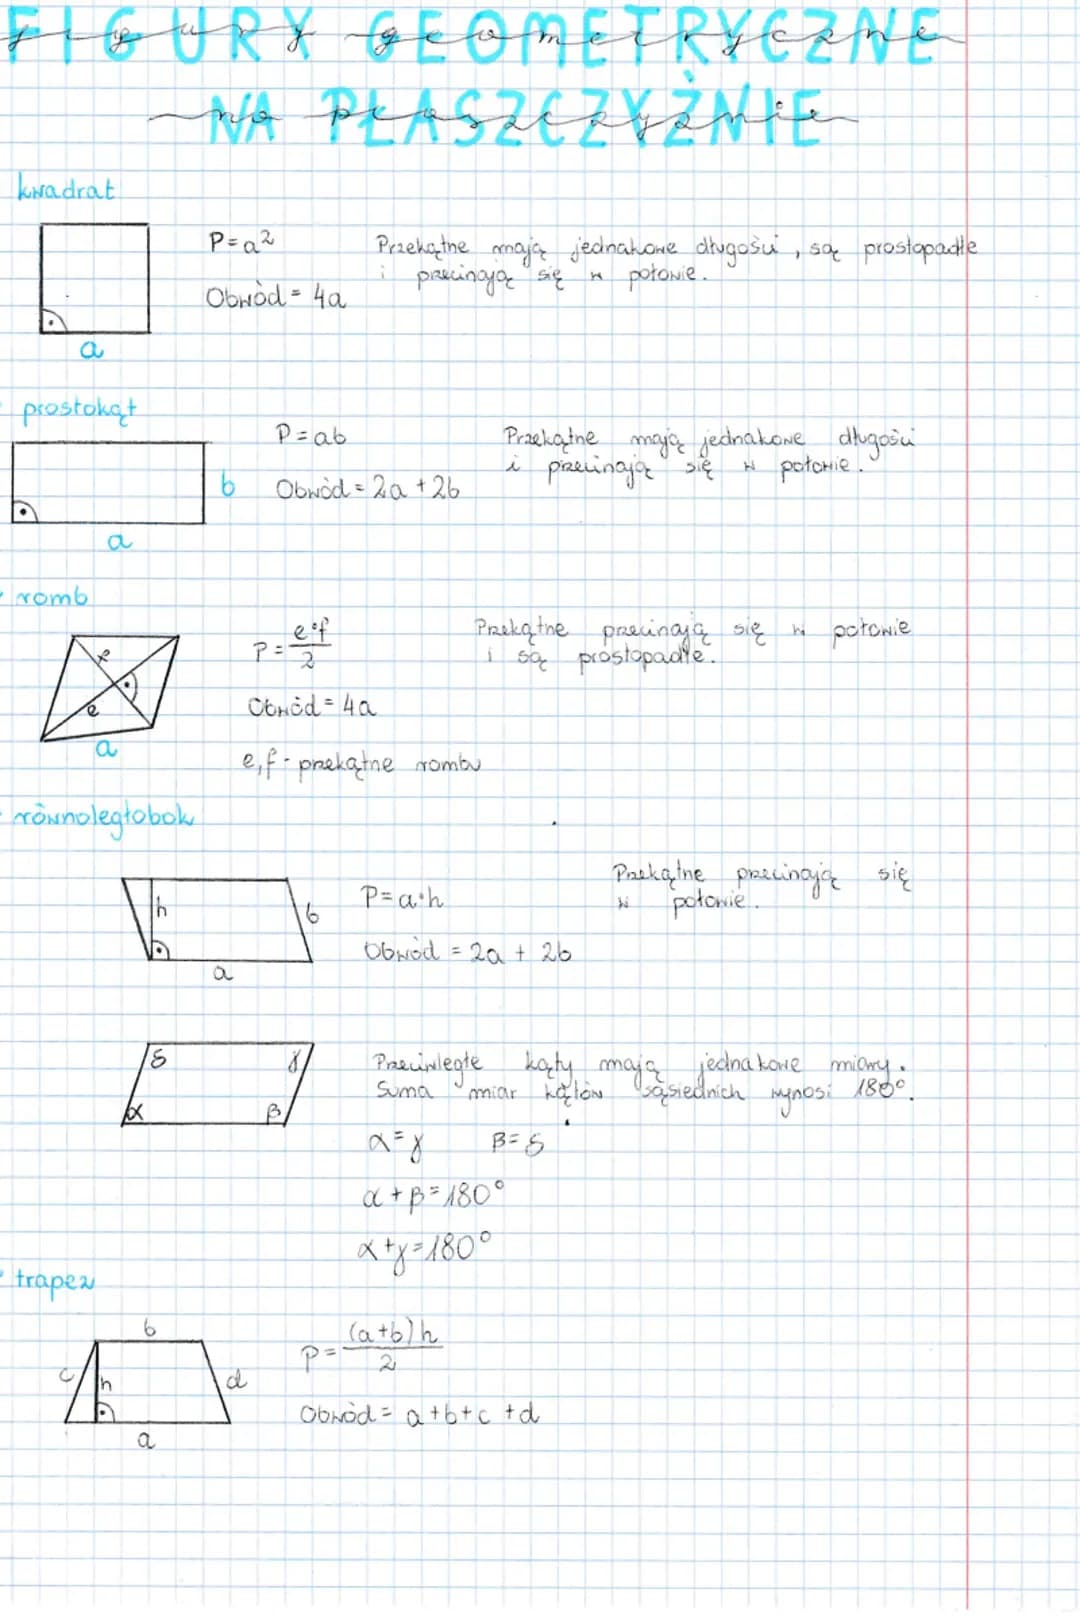 FIGURY GEOMETRYCZNE
figury geometryczne
NA PŁASZCZYŹNIE
na płaszczyźnie
kwadrat
P=a²
Przekątne mają jednakowe długości, są prostopadłe
i przecinają się w połowie.
Obwód = 4a
a
prostokąt
P=ab
Przekątne mają jednakowe długości
i przecinają się w połowie.
b
Obwód = 2a + 2b
a
romb
P = e·f/2
Przekątne przecinają się w połowie
i są prostopadłe.
f
e
Obwód = 4a
a
e,f - przekątne rombu
równoległobok
Przekątne przecinają się
w połowie.
h
b
P=a·h
Obwód = 2a + 2b
a
δ
γ
Przeciwległe kąty mają jednakowe miary.
Suma miar kątów sąsiednich wynosi 180°.
α
β
α=γ β=δ
α+β=180°
α+γ=180°
trapez
b
P = (a+b)h/2
c
h
d
Obwód = a+b+c+d
a